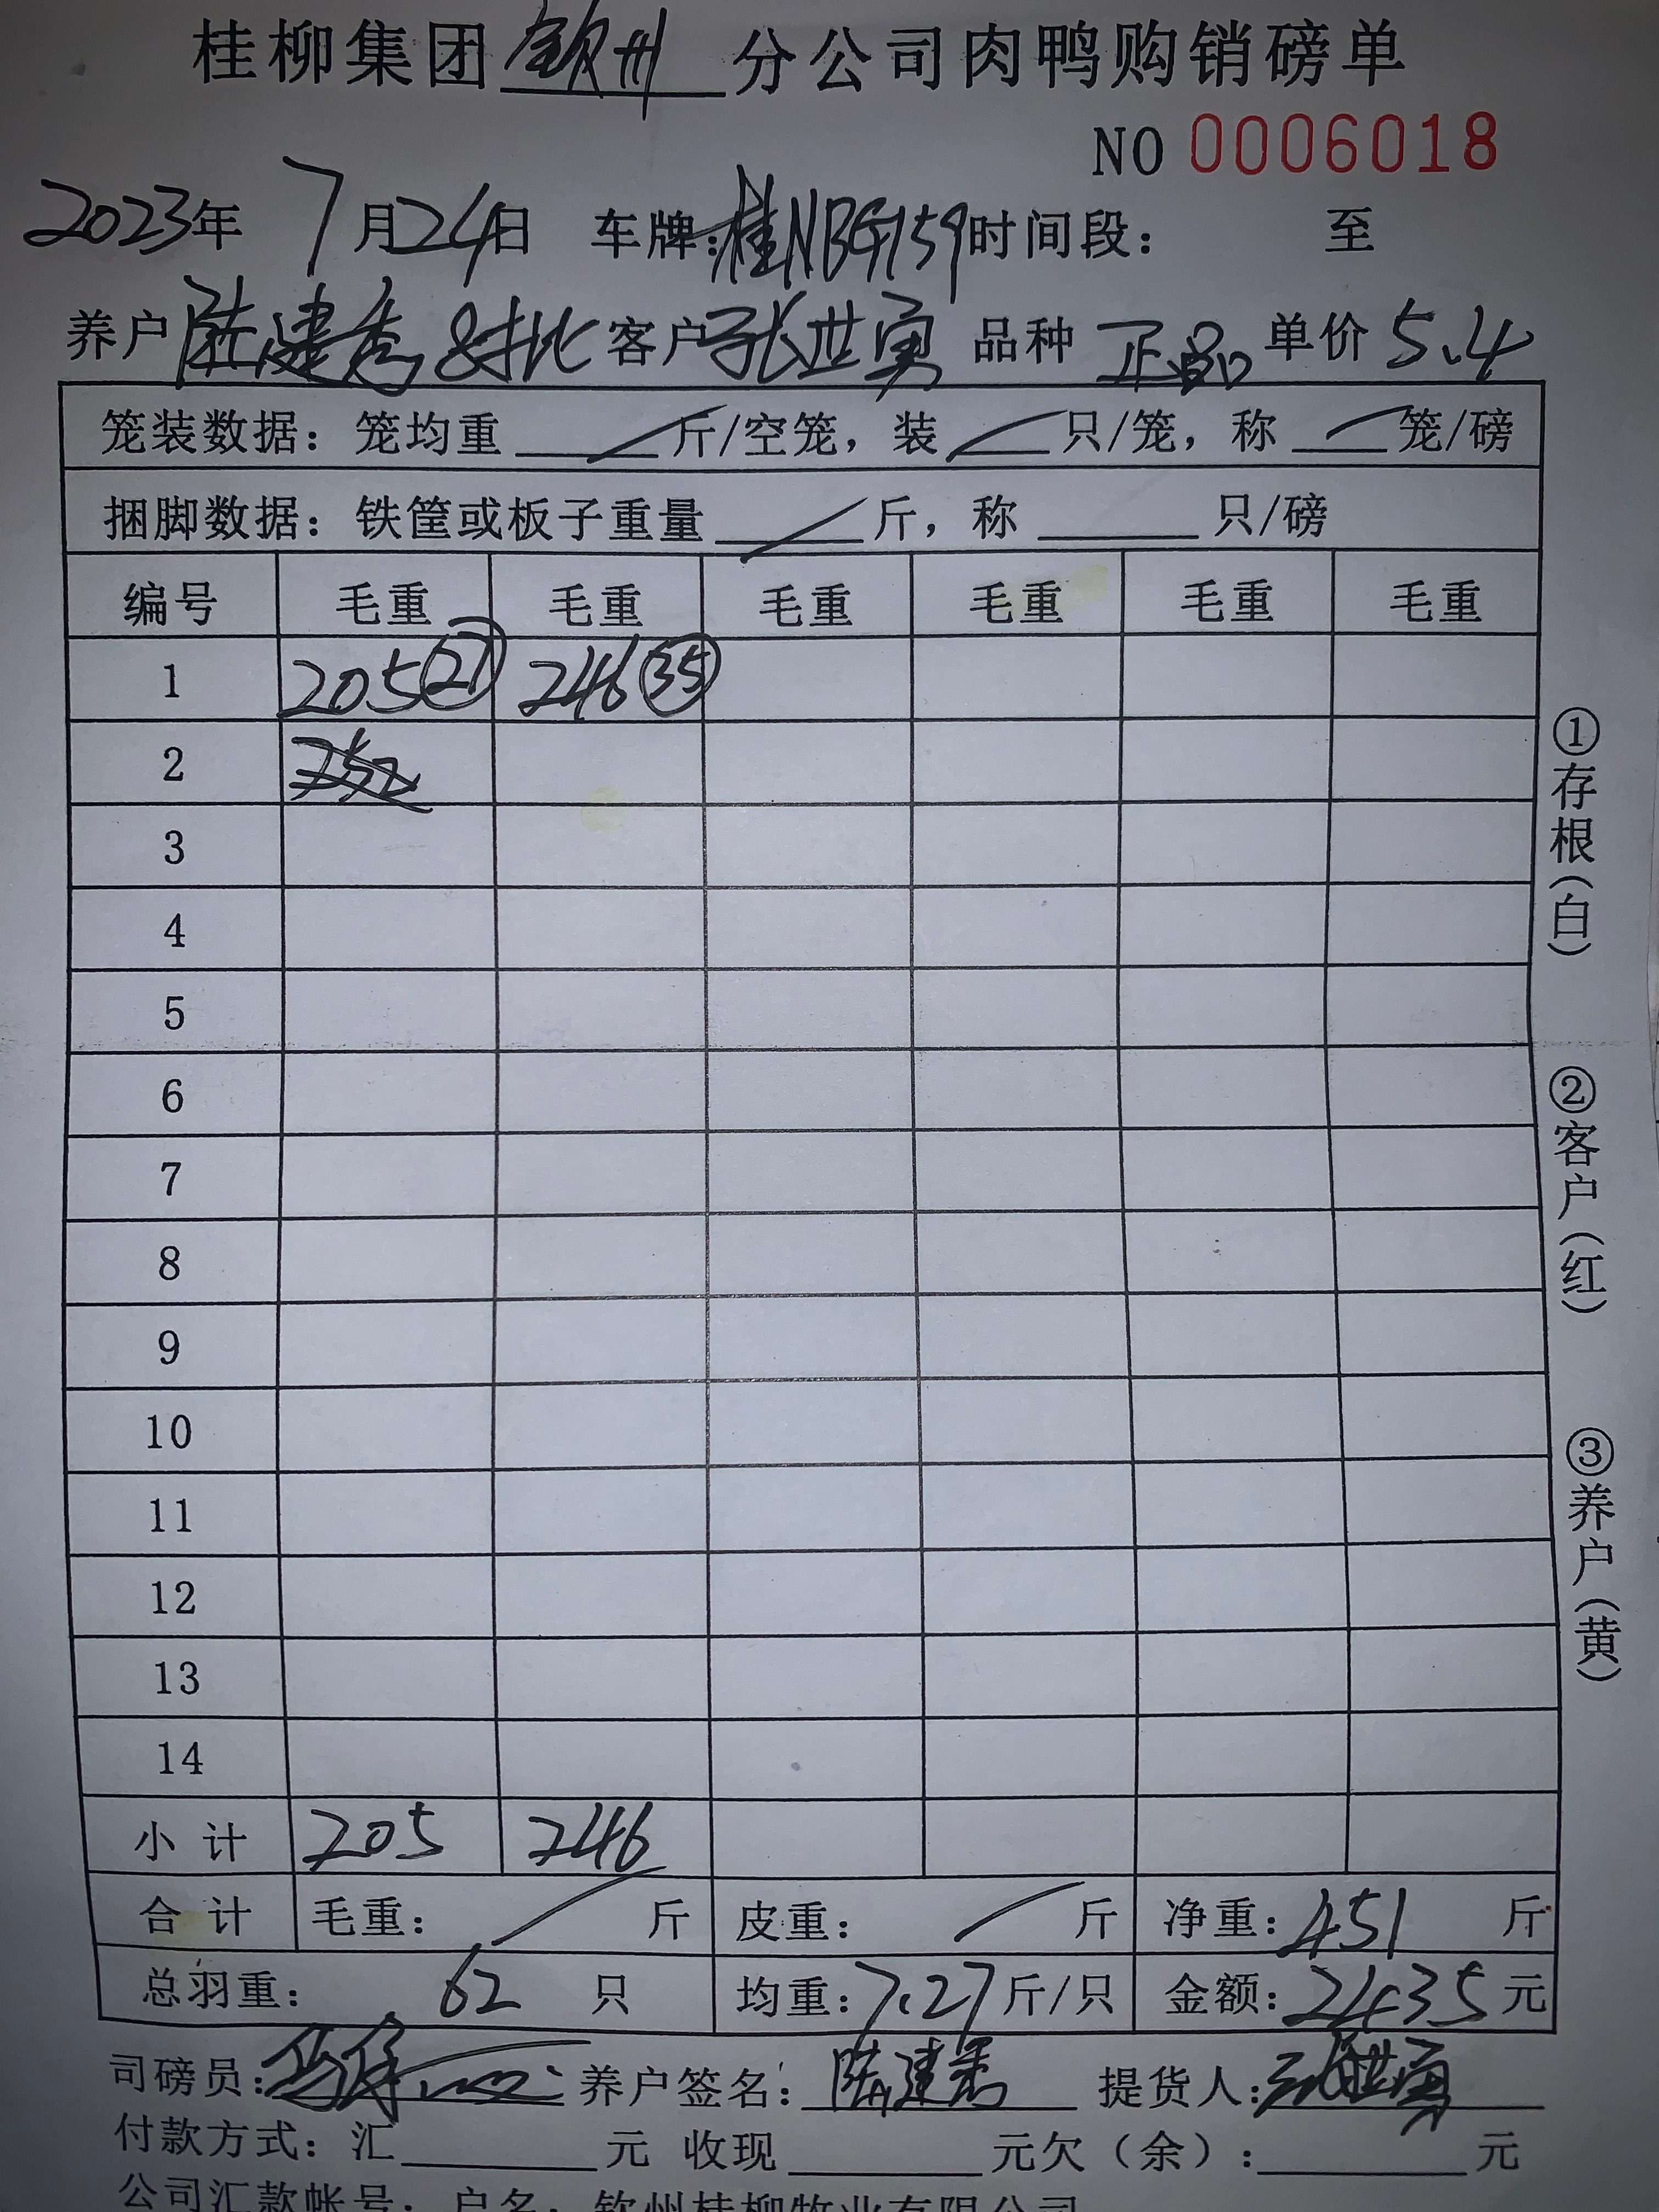 桂柳集团钦州分公司肉鸭购销磅单
NO 0006018
2023年 7月24日 车牌:桂NBG159时间段: 至
养户 陆建秀 对比 客户 张世勇 品种 正品 单价 5.4
笼装数据: 笼均重 斤/空笼, 装 只/笼, 称 笼/磅
捆脚数据: 铁筐或板子重量 斤, 称 只/磅
编号 毛重 毛重 毛重 毛重 毛重 毛重
1 205 27 246 35
2
3
4
5
6
7
8
9
10
11
12
13
14
小计 205 246
合计 毛重: 斤 皮重: 斤 净重: 451 斤
总羽重: 62 只 均重: 7.27 斤/只 金额: 2435 元
司磅员: 养户签名: 陆建秀 提货人: 张世勇
付款方式: 汇 元 收现 元欠(余): 元
公司汇款帐号: 户名: 钦州桂柳牧业有限公司
①存根(白)
②客户(红)
③养户(黄)